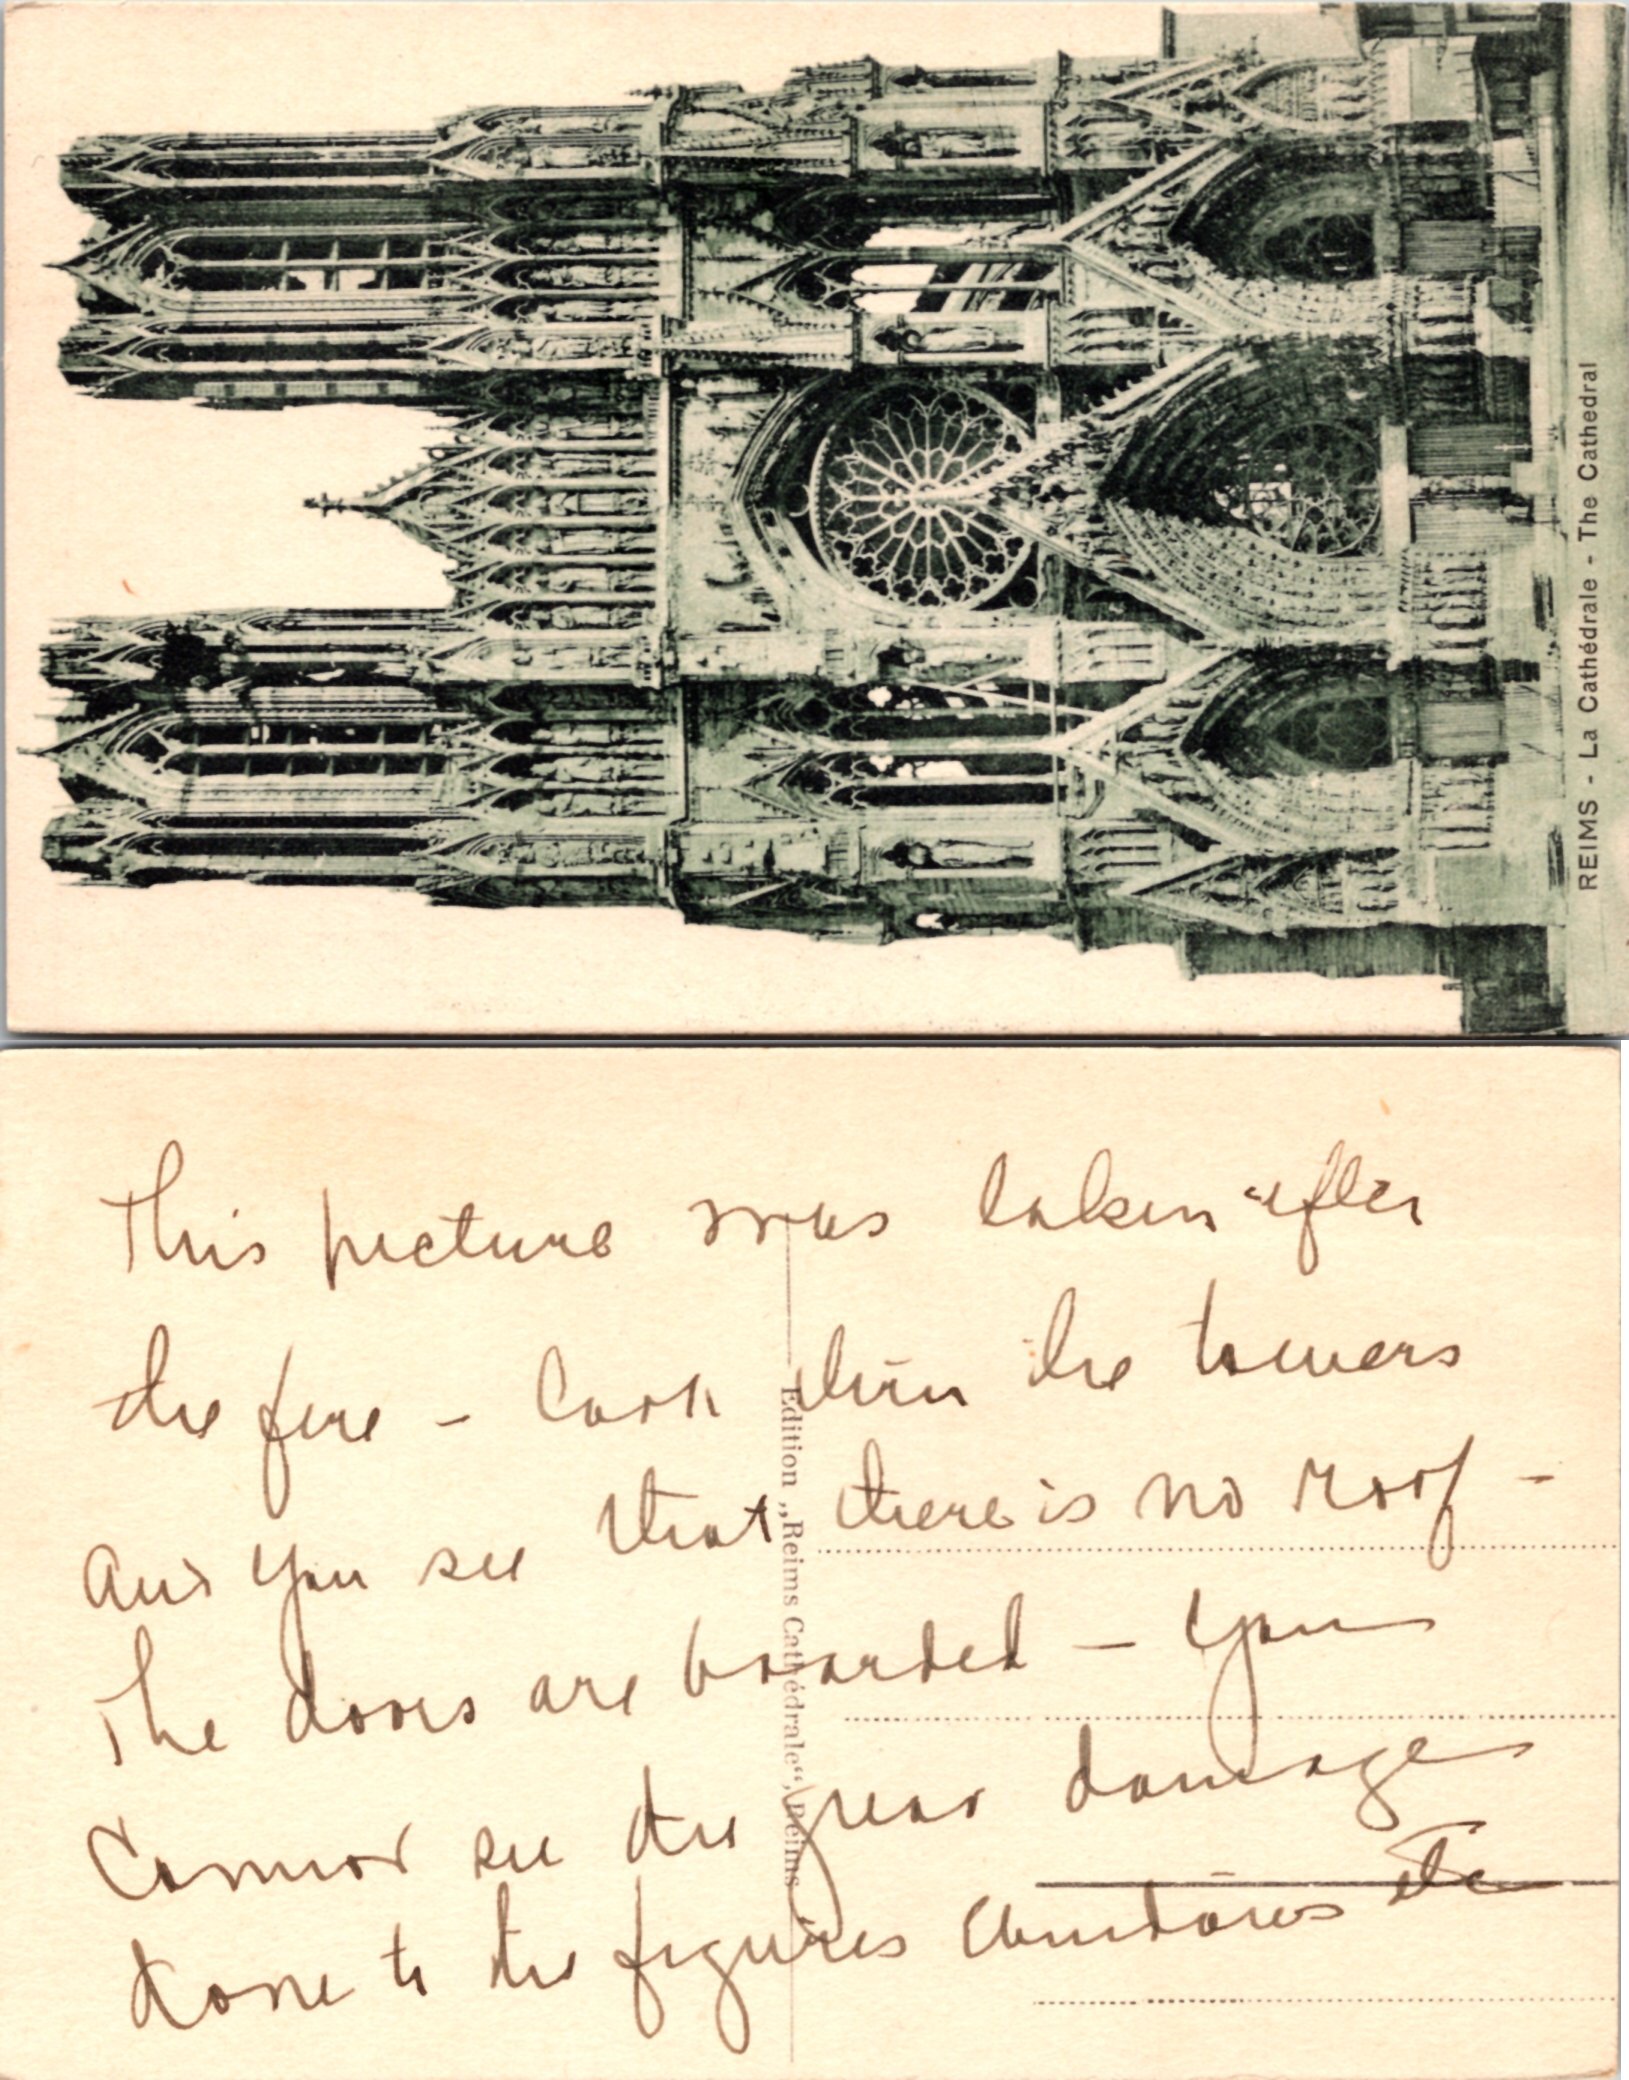 REIMS - La Cathédrale - The Cathedral
This picture was taken after
the fire - Look thru the towers
and you see that there is no roof -
The doors are boarded - You
Cannot see the great damage
done to the figures windows etc
Edition „Reims Cathédrale“, Reims